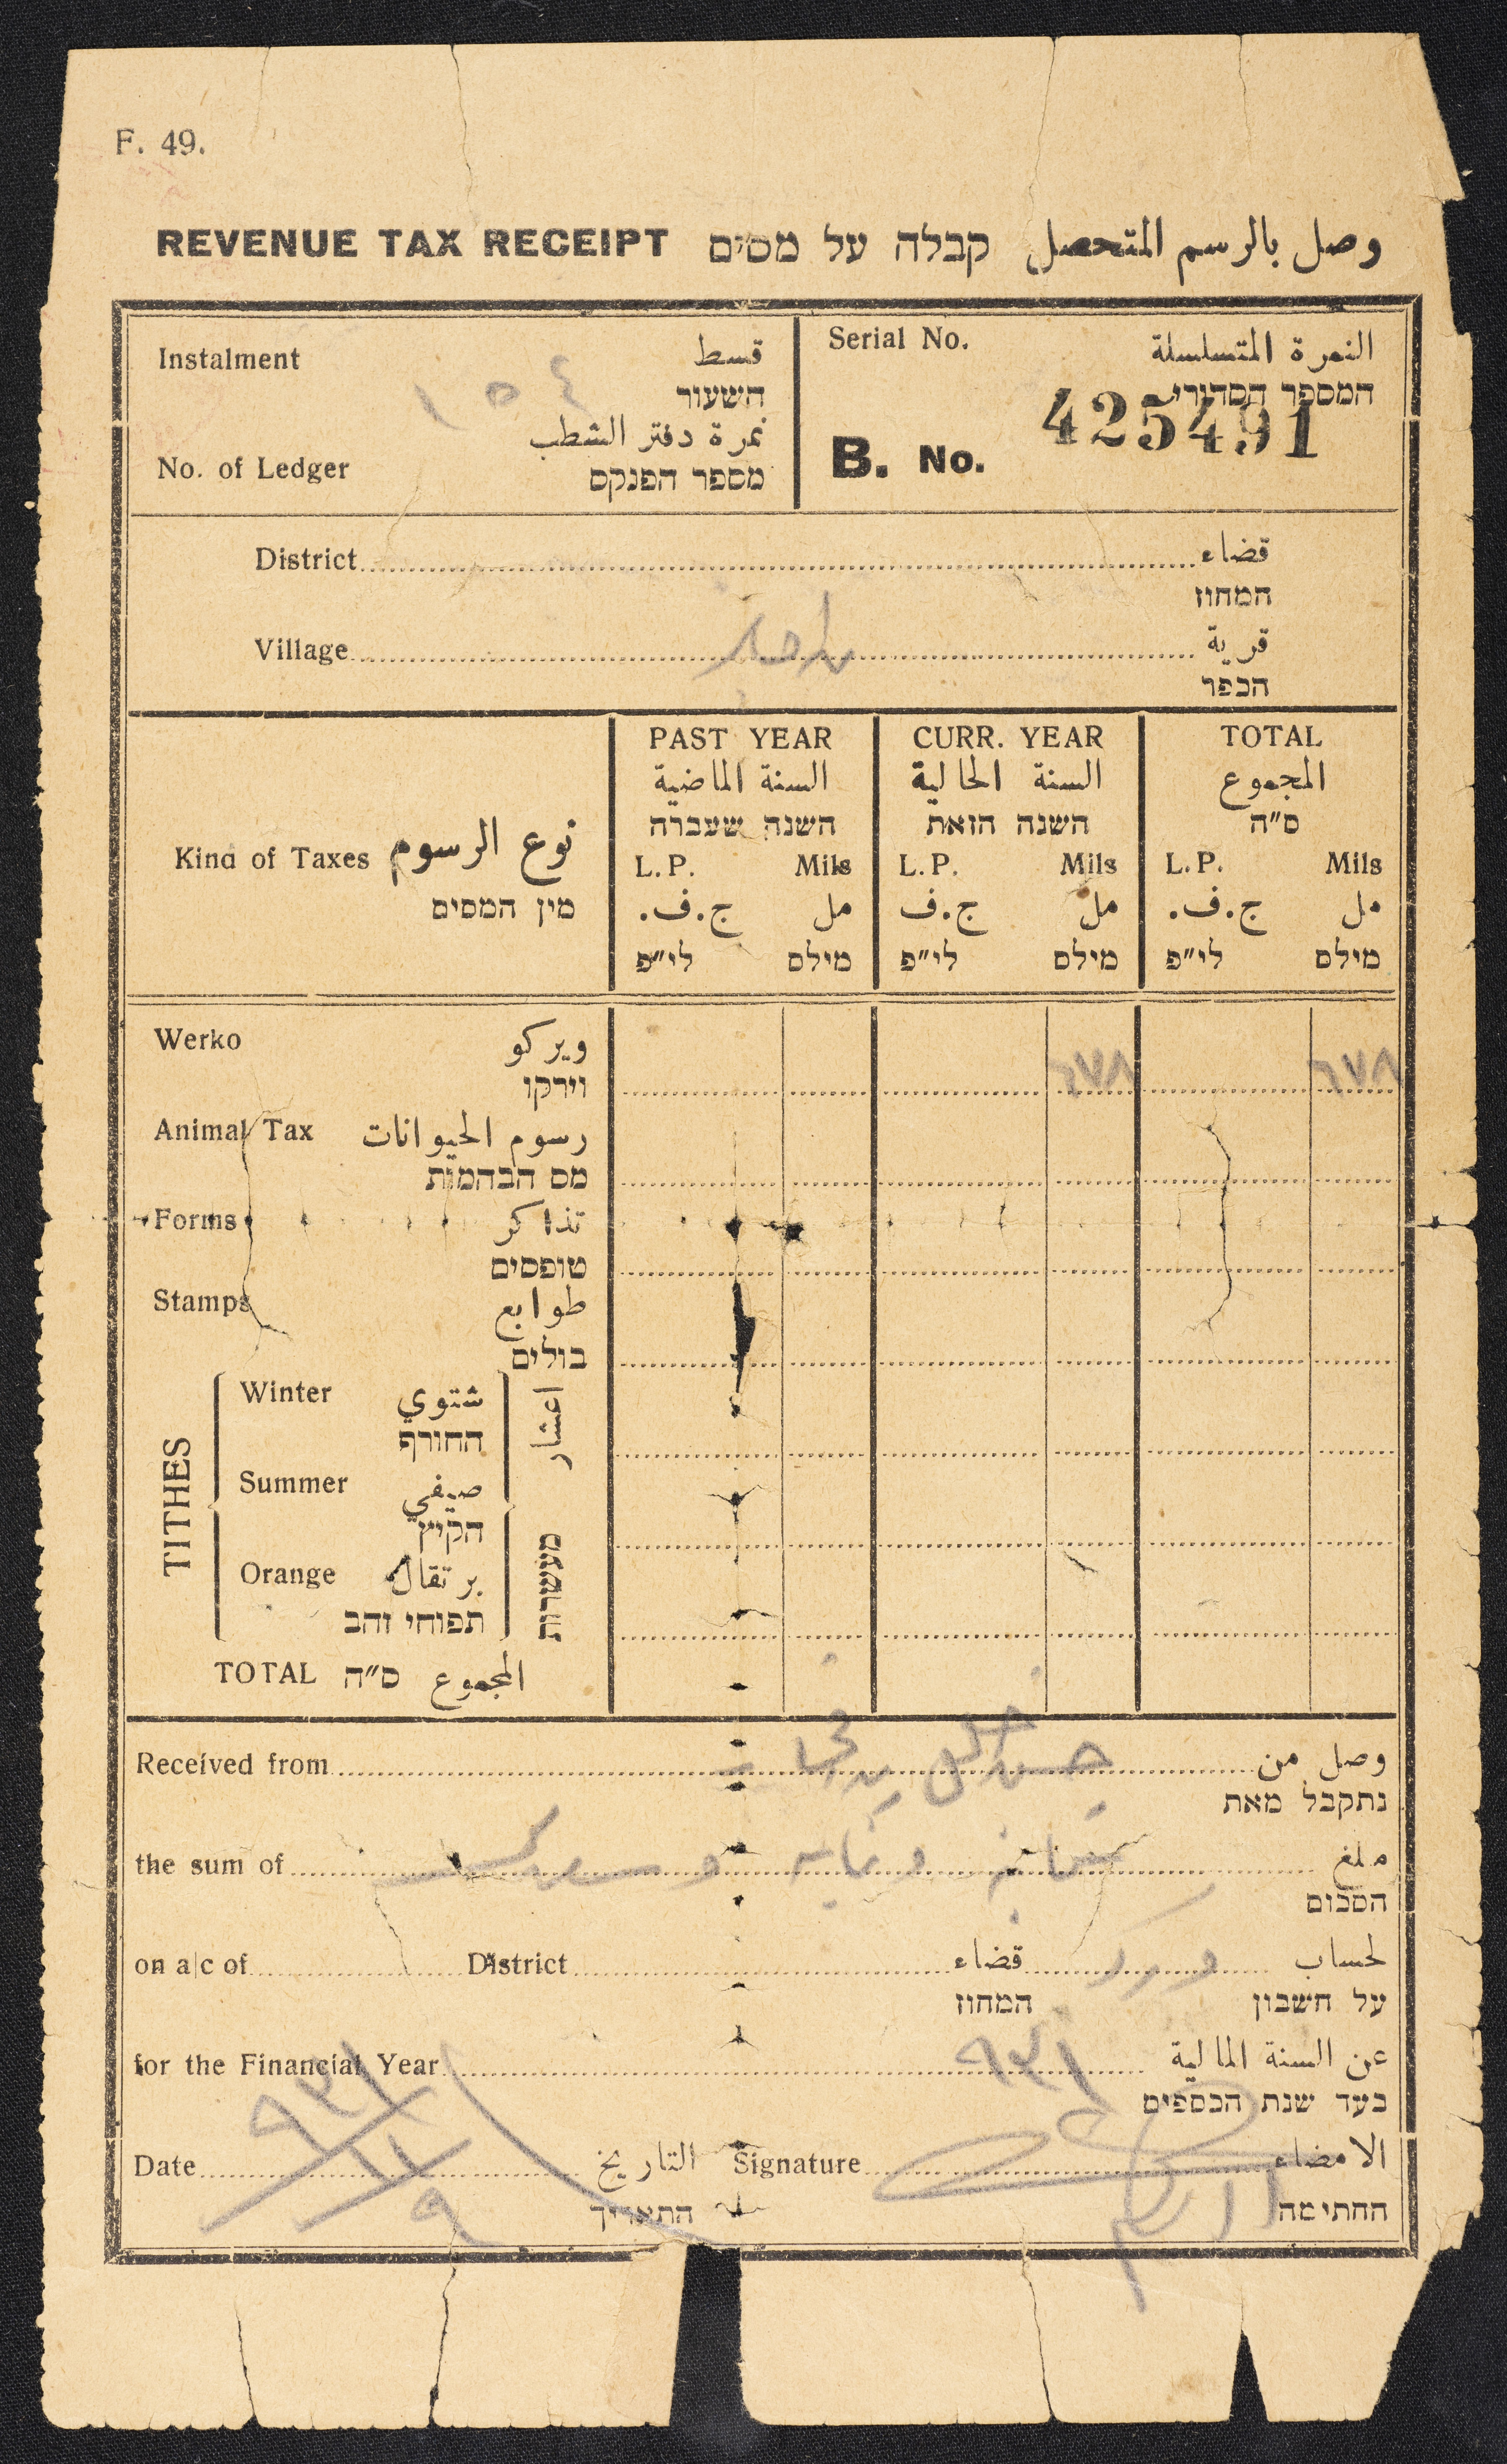 F. 49.
REVENUE TAX RECEIPT קבלה על מסים وصل بالرسم المتحصل
Instalment قسط
השעור
١٥٤
نمرة دفتر الشطب
No. of Ledger מספר הפנקס
Serial No. النمرة المتسلسلة
המספר הסדורי
B. No. 425491
District قضاء
המחוז
Village قرية
הכפר
Kind of Taxes نوع الرسوم
מין המסים
PAST YEAR
السنة الماضية
השנה שעברה
L.P. Mils
ج.ف. مل
לי״פ מילס
CURR. YEAR
السنة الحالية
השנה הזאת
L.P. Mils
ج.ف مل
לי״פ מילס
TOTAL
المجموع
ס״ה
L.P. Mils
ج.ف. مل
לי״פ מילס
Werko ويركو
וירקו
٦٧٨ ٦٧٨
Animal Tax رسوم الحيوانات
מס הבהמות
Forms تذاكر
טופסים
Stamps طوابع
בולים
TITHES اعشار מעשרות
Winter شتوي
החורף
Summer صيفي
הקיץ
Orange برتقال
תפוחי זהב
TOTAL ס״ה المجموع
Received from وصل من
נתקבל מאת
the sum of مبلغ
הסכום
on a/c of District قضاء لحساب
המחוז על חשבון
for the Financial Year ٩٣١ عن السنة المالية
בעד שנת הכספים
Date ٩/١١/٩٣١ التاريخ Signature الامضاء
התאריך החתימה